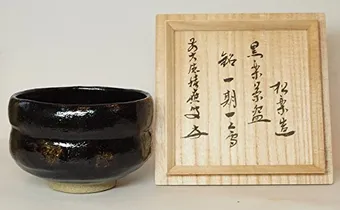 松楽造
黒楽茶盌
銘 一期一会
前大徳